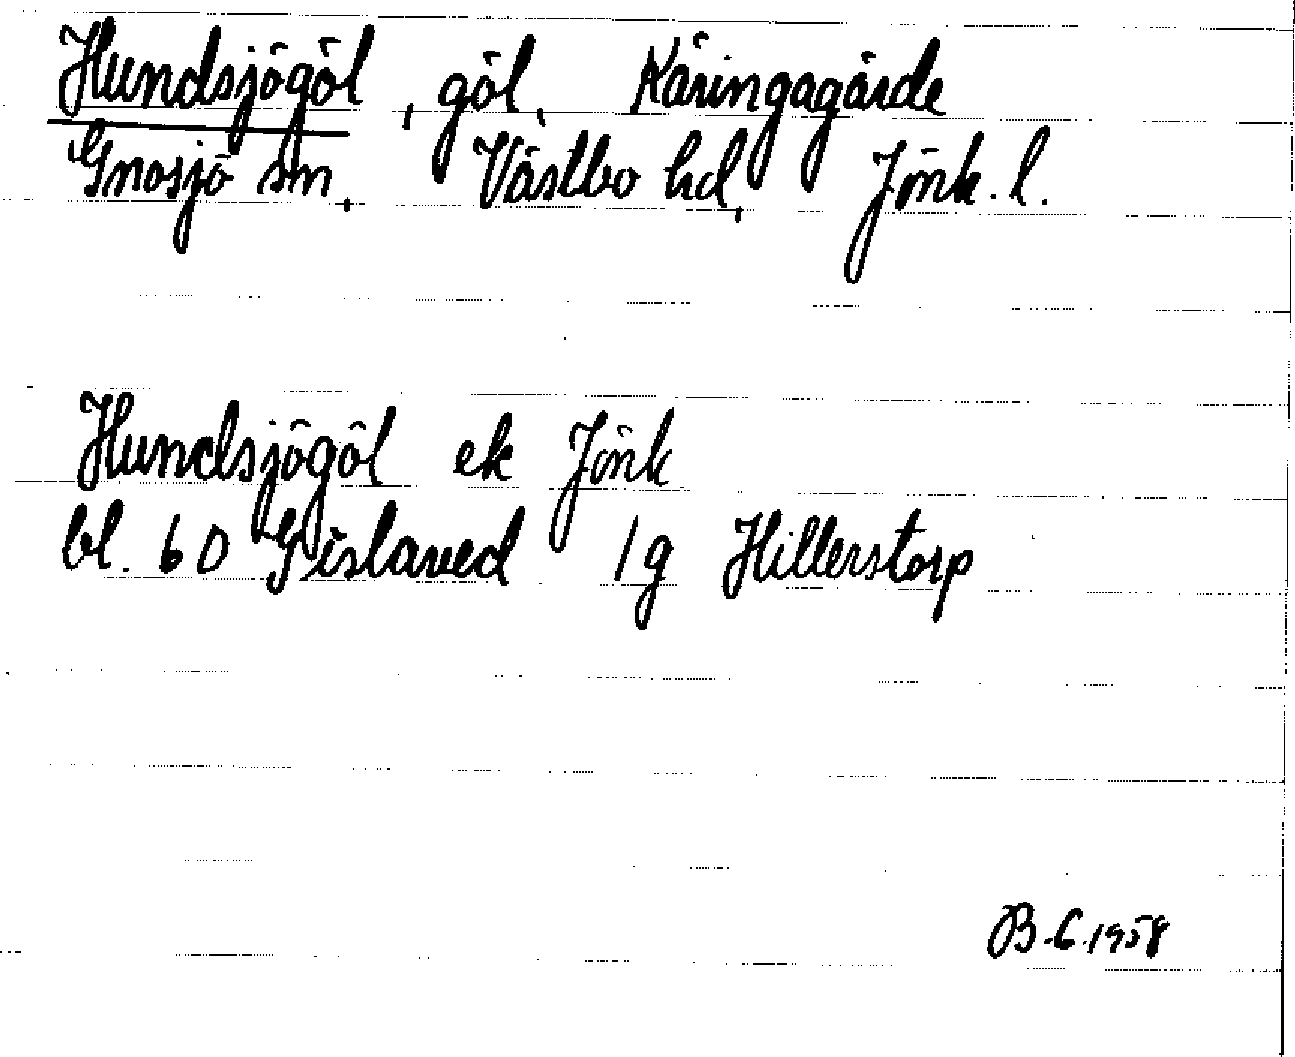 Hundsjögöl, göl, Käringagärde
Gnosjö sn, Västbo hd, Jönk. l.
Hundsjögöl ek Jönk
bl. 60 Gislaved 1g Hillerstorp
B.C. 1958